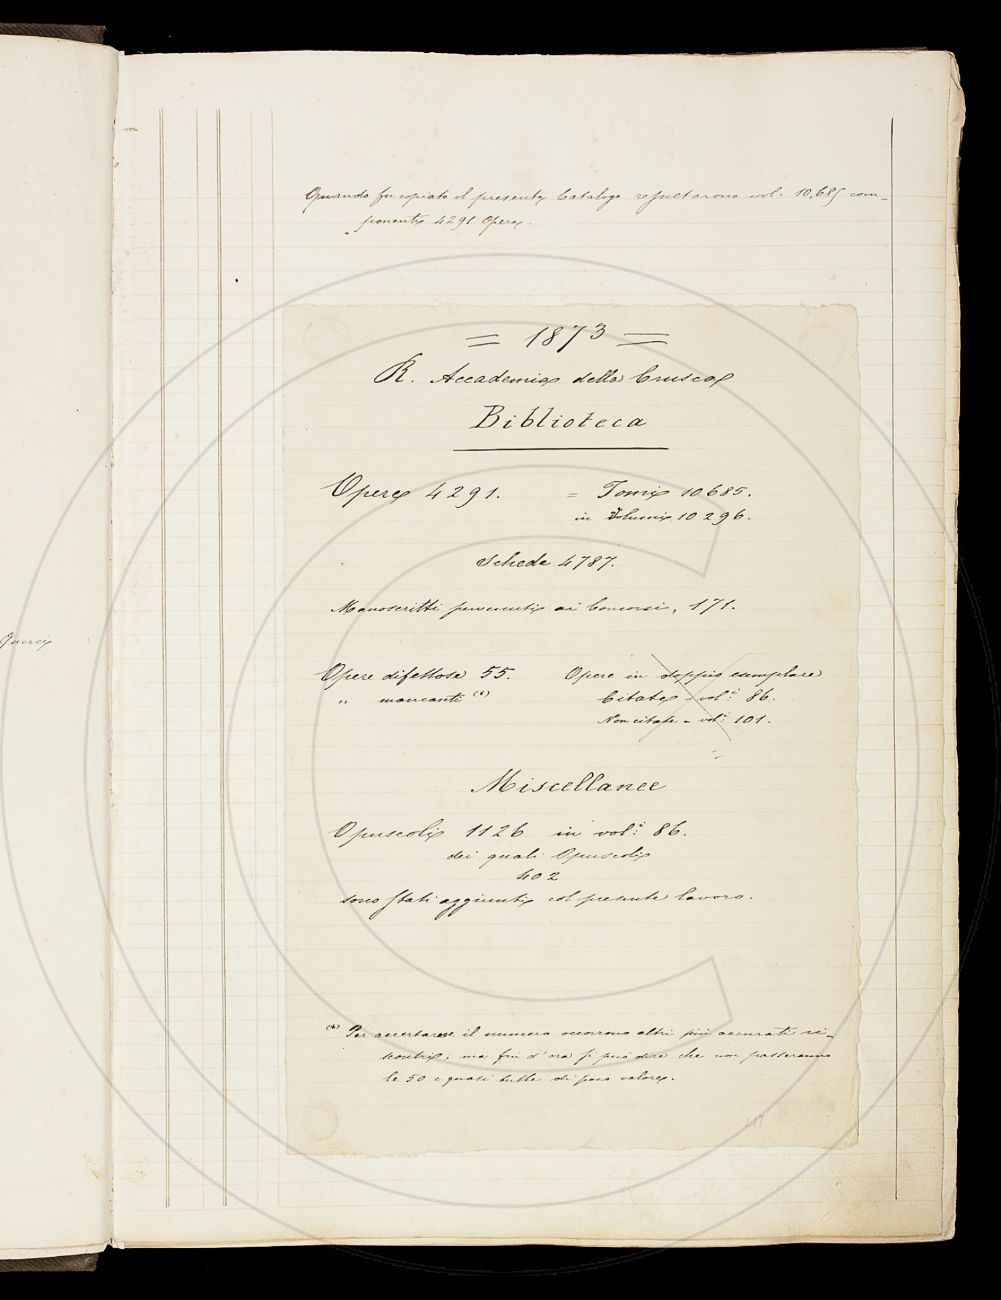 Quando fu copiato il presente Catalogo resultarono vol. 10,685 com-
ponenti 4291 Opere.
= 1873 =
R. Accademia della Crusca
Biblioteca
Opere 4291. = Tomi 10685.
in Volumi 10296.
Schede 4787.
Manoscritti pervenuti ai Concorsi, 171.
Opere difettose 55. Opere in doppio esemplare
" mancanti (*) Citate - vol.i 86.
Non citate - vol.i 101.
Miscellanee
Opuscoli 1126 in vol.i 86.
dei quali Opuscoli
402
sono stati aggiunti col presente lavoro.
(*) Per accertarne il numero occorrono altri più accurati ri-
scontri; ma fin d'ora si può dire che non passeranno
le 50 e quasi tutte di poco valore.